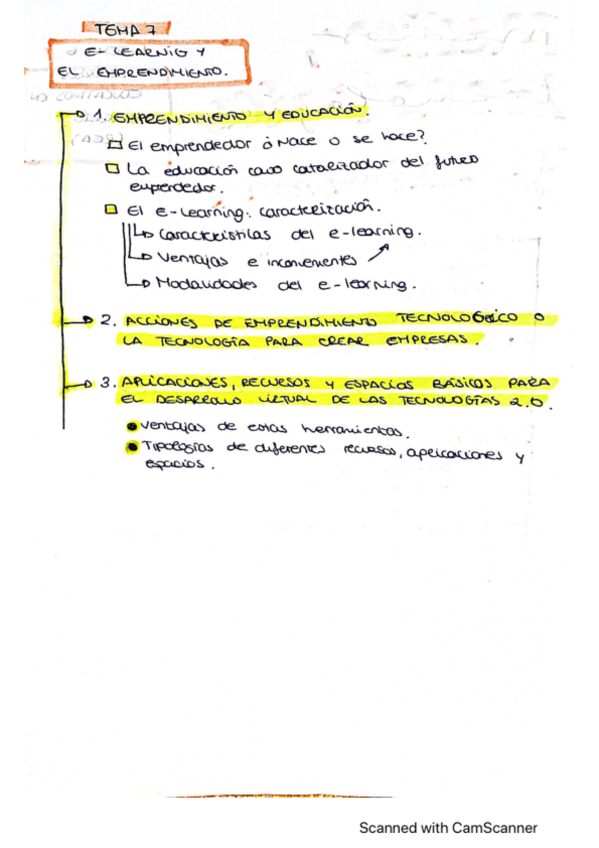 TEMA 7
E-LEARNIG Y
EL EMPRENDIMIENTO.
1. EMPRENDIMIENTO Y EDUCACIÓN.
El emprendedor ¿Nace o se hace?
La educación como catalizador del futuro
emperdedor.
El e-Learning: caracterización.
Características del e-learning.
Ventajas e inconvenientes
Modalidades del e-learning.
2. ACCIONES DE EMPRENDIMIENTO TECNOLÓGICO O
LA TECNOLOGÍA PARA CREAR EMPRESAS.
3. APLICACIONES, RECURSOS Y ESPACIOS BÁSICOS PARA
EL DESARROLLO VIRTUAL DE LAS TECNOLOGÍAS 2.0.
Ventajas de estas herramientas.
Tipologías de diferentes recursos, aplicaciones y
espacios.
Scanned with CamScanner